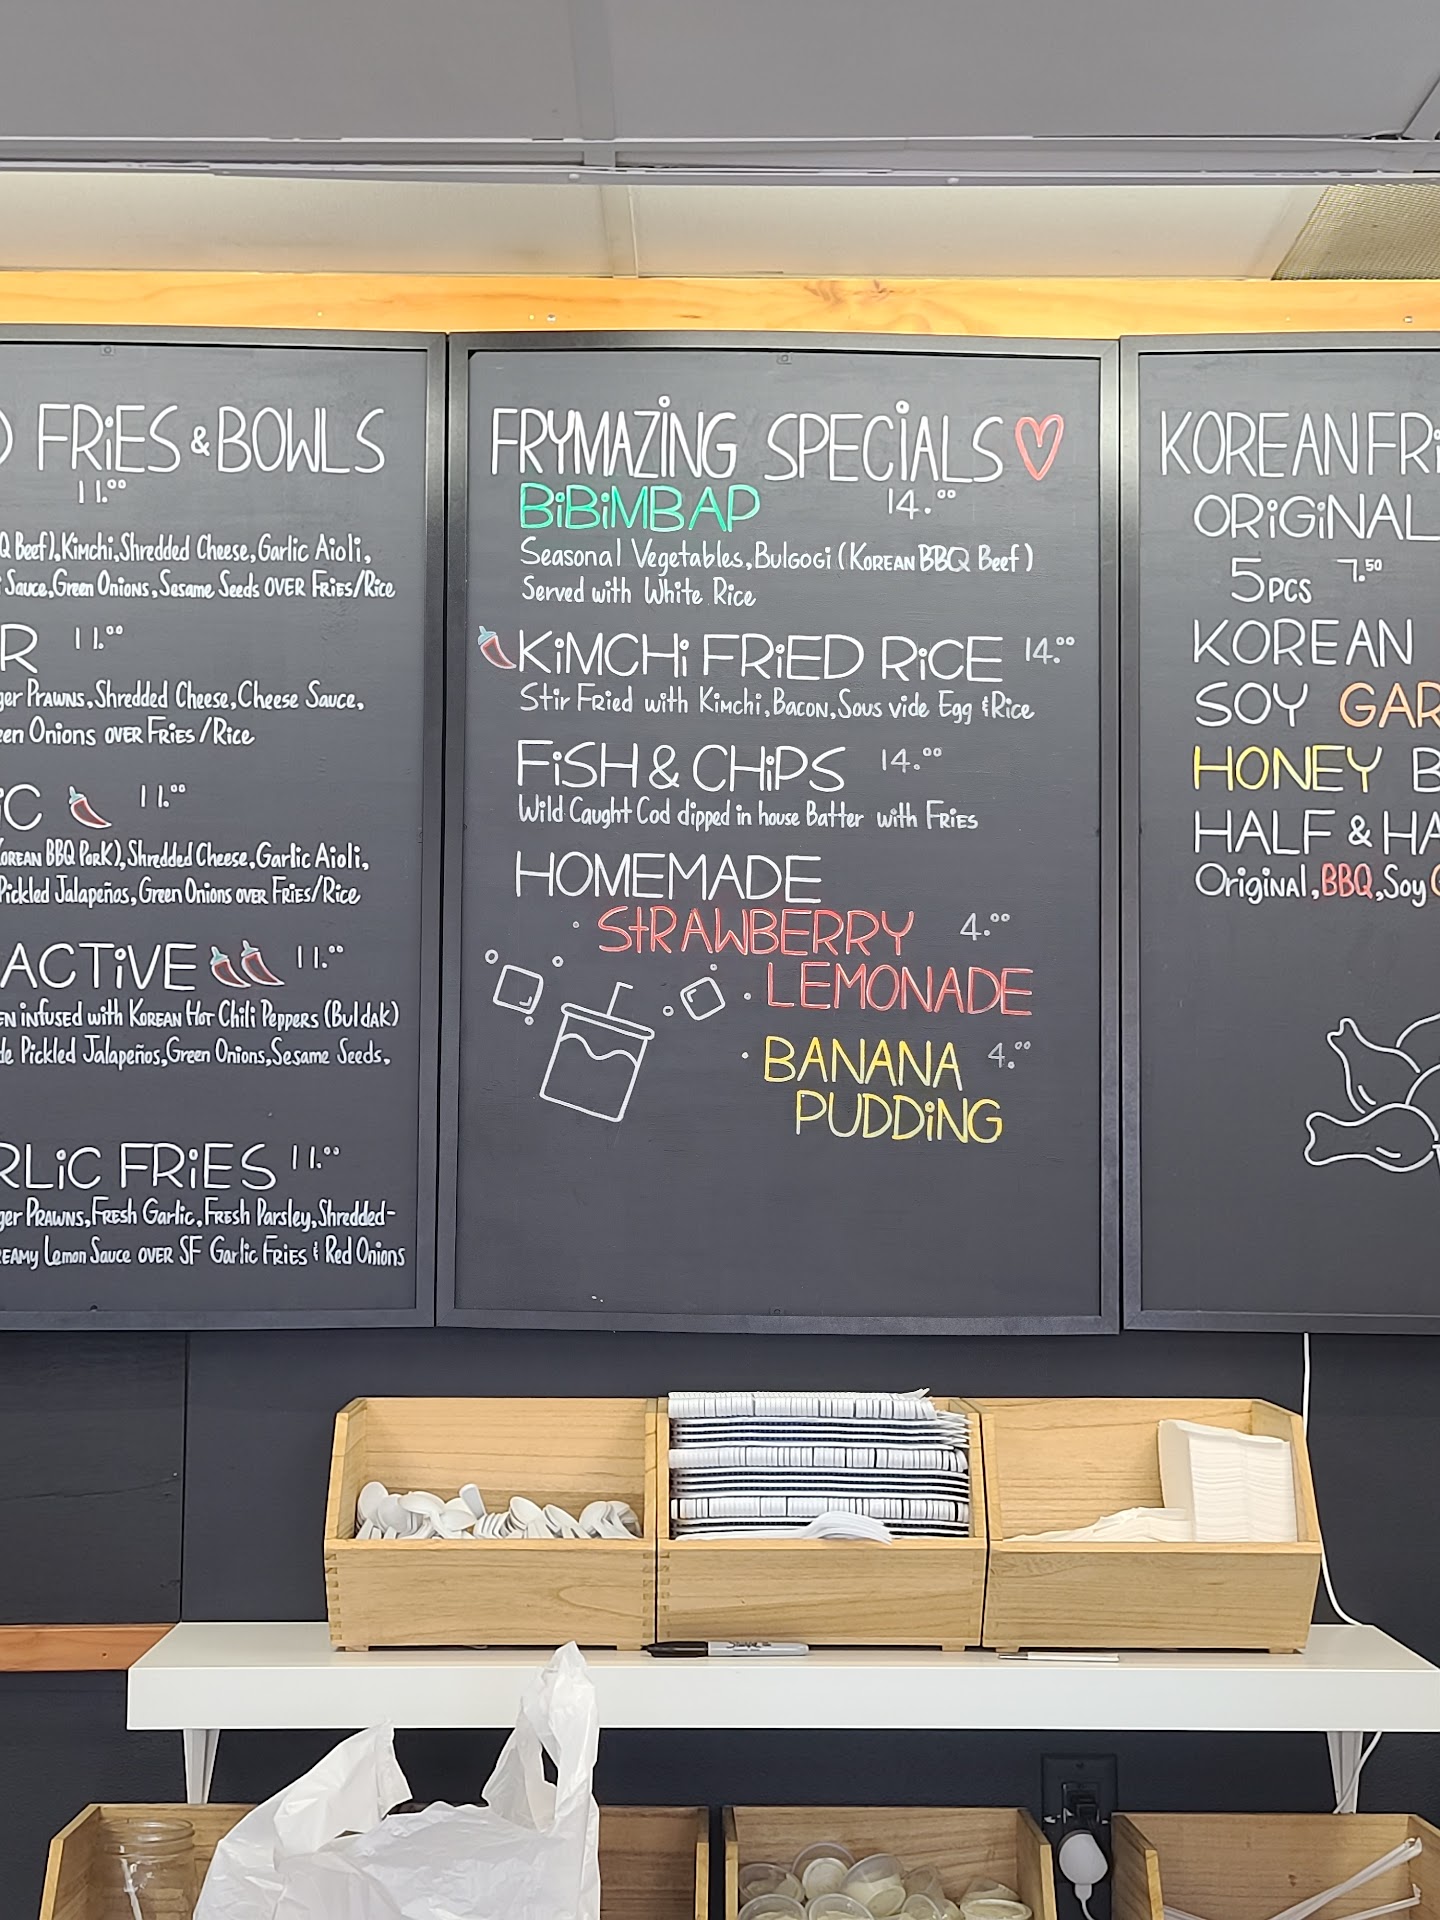 FRiES & BOWLS
11.00
Q Beef), Kimchi, Shredded Cheese, Garlic Aioli,
Sauce, Green Onions, Sesame Seeds OVER FRiES/Rice
R 11.00
ger PRAWNS, Shredded Cheese, Cheese Sauce,
een Onions OVER FRiES/Rice
iC 11.00
OREAN BBQ PorK), Shredded Cheese, Garlic Aioli,
Pickled Jalapeños, Green Onions OVER FRiES/Rice
ACTiVE 11.00
EN iNfused with KOREAN Hot Chili Peppers (Buldak)
de Pickled Jalapeños, Green Onions, Sesame Seeds.
RLiC FRiES 11.00
ger PRAWNS, FRESH Garlic, FRESH Parsley, Shredded-
EAMy Lemon Sauce OVER SF Garlic FRiES & Red Onions
FRYMAZiNG SPECiALS
BiBiMBAP 14.00
Seasonal Vegetables, Bulgogi (KOREAN BBQ Beef)
Served with White Rice
KiMCHi FRiED RiCE 14.00
Stir Fried with Kimchi, BACON, Sous vide Egg & Rice
FiSH & CHiPS 14.00
Wild Caught Cod dipped in house Batter with FRiES
HOMEMADE
· STRAWBERRY 4.00
· LEMONADE
· BANANA 4.00
PUDDiNG
KOREAN FRi
ORiGiNAL
5 PCS 7.50
KOREAN
SOY GAR
HONEY B
HALF & HA
Original, BBQ, Soy G